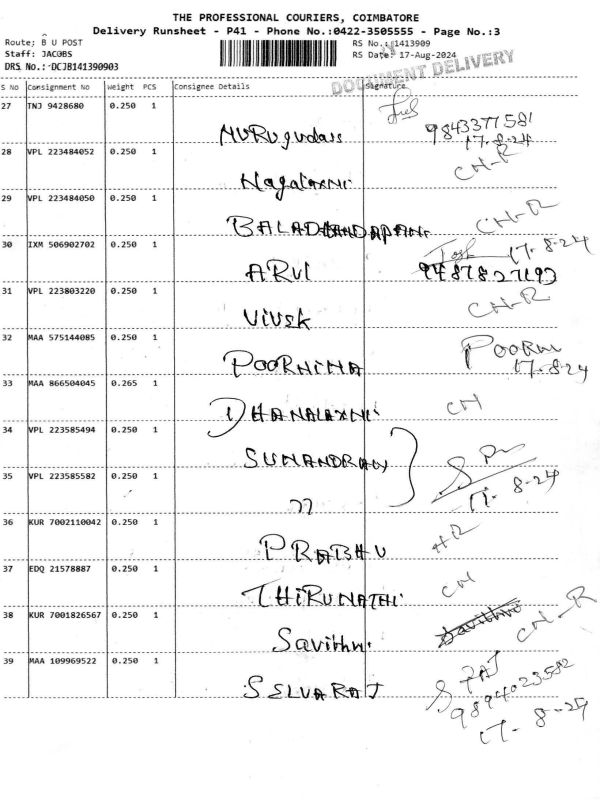 THE PROFESSIONAL COURIERS, COIMBATORE
Delivery Runsheet - P41 - Phone No.:0422-3505555 - Page No.:3
Route; B U POST
RS No.:1413909
Staff: JACOBS
RS Date: 17-Aug-2024
DRS No.: DCJB141390903
DOCUMENT DELIVERY
S No Consignment No Weight PCS Consignee Details Signature
27 TNJ 9428680 0.250 1
Murugudass 9843377581
17-8-24
28 VPL 223484052 0.250 1
Nagalaxmi CN-R
29 VPL 223484050 0.250 1
BALADHANDAPANI CN-R
30 IXM 506902702 0.250 1
17-8-24
ARUL 9487827192
31 VPL 223803220 0.250 1
Vivek CN-R
32 MAA 575144085 0.250 1
POORNIMA POORNI
17-8-24
33 MAA 866504045 0.265 1
DHANALAXMI CN
34 VPL 223585494 0.250 1
35 VPL 223585582 0.250 1
17-8-24
36 KUR 7002110042 0.250 1
PRABHU
37 EDQ 21578887 0.250 1
THIRUNATHI CN
38 KUR 7001826567 0.250 1
Savithri CN-R
39 MAA 109969522 0.250 1
SELVARAJ
9894023582
17-8-24